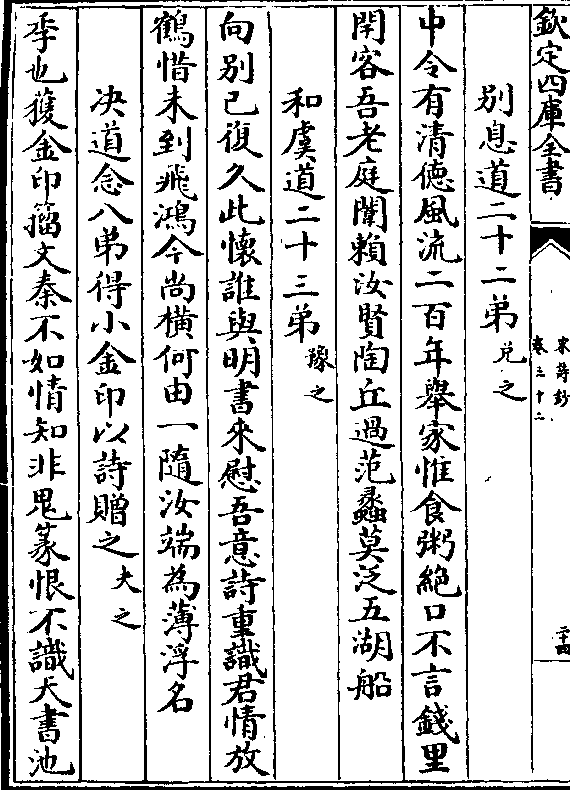 欽定四庫全書
宋詩鈔
卷三十二
二十四
別息道二十二弟兌之
中令有清德風流二百年舉家惟食粥絶口不言錢里
閈容吾老庭闈賴汝賢陶丘過范蠡莫泛五湖船
和虞道二十三弟豫之
向别已復久此懷誰與明書來慰吾意詩重識君情放
鶴惜未到飛鴻今尚横何由一隨汝端為薄浮名
決道念八弟得小金印以詩贈之夬之
季也獲金印籀文秦不如情知非鬼篆恨不識天書池